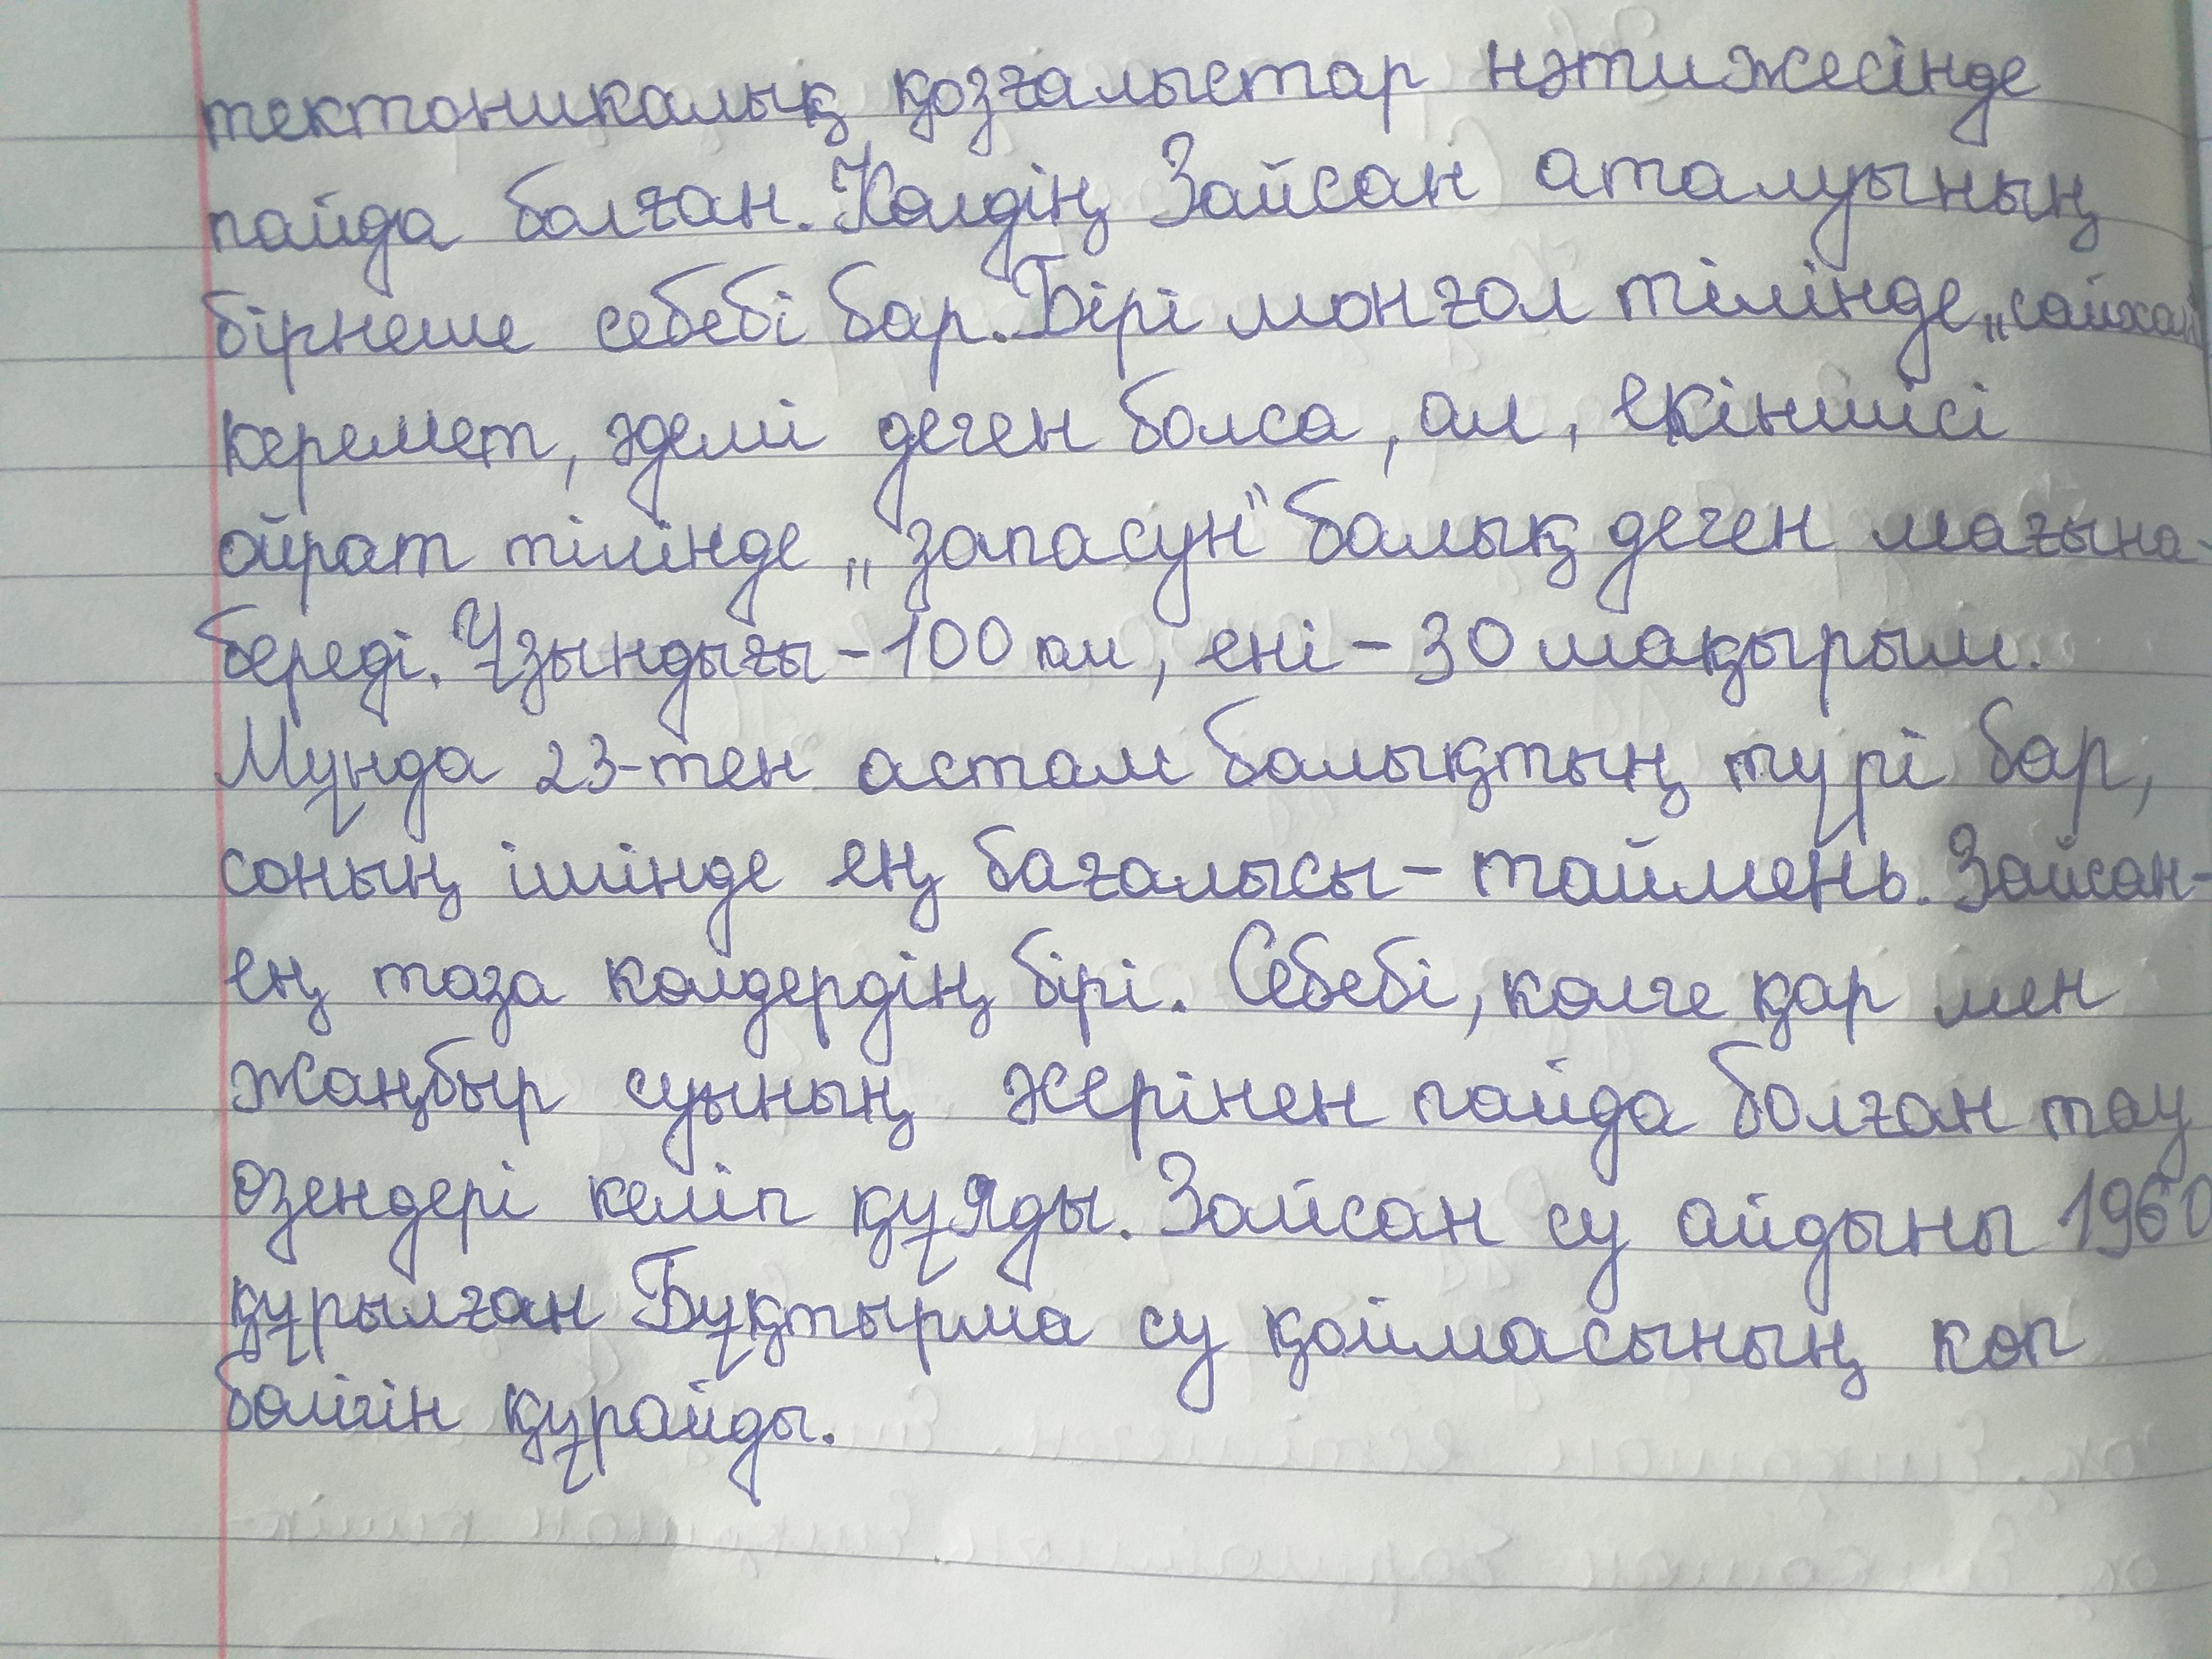 тектоникалық қозғалыстар нәтижесінде
пайда болған. Көлдің Зайсан аталуының
бірнеше себебі бар. Бірі монғол тілінде „сайхан"
керемет, әдемі деген болса, ал, екіншісі
ойрат тілінде „запасун" балық деген мағына-
береді. Ұзындығы - 100 км, ені - 30 шақырым.
Мұнда 23-тен астам балықтың түрі бар,
соның ішінде ең бағалысы - таймень. Зайсан-
ең таза көлдердің бірі. Себебі, көлге қар мен
жаңбыр суының жерінен пайда болған тау
өзендері келіп құяды. Зайсан су айдыны 1960
құрылған Бұқтырма су қоймасының көп
бөлігін құрайды.